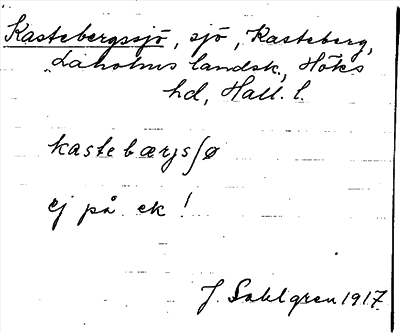 Kastebergssjö, sjö, Kasteberg,
Laholms landsk., Höks
hd, Hall. l.
kastebærjsʃø
ej på ek!
J. Sahlgren 1917.